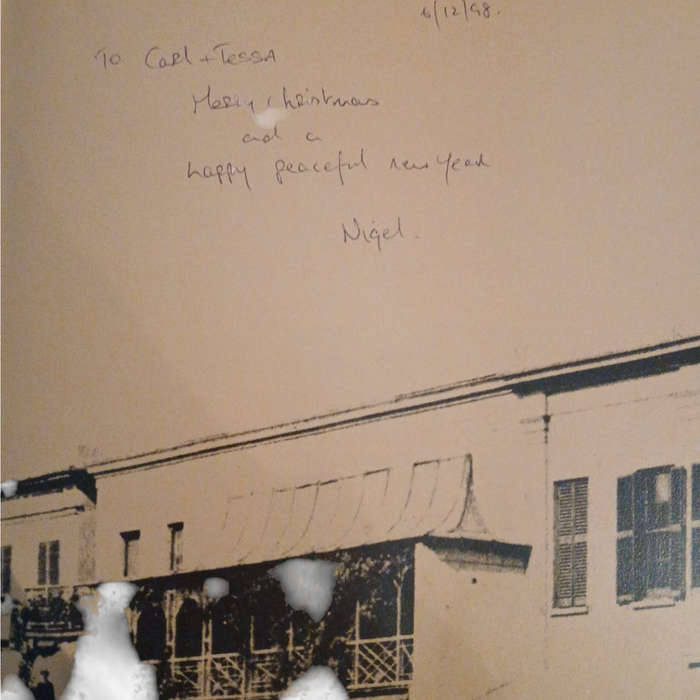 6/12/98.
To Carl + Tessa
Merry Christmas
and a
happy peaceful new year
Nigel.